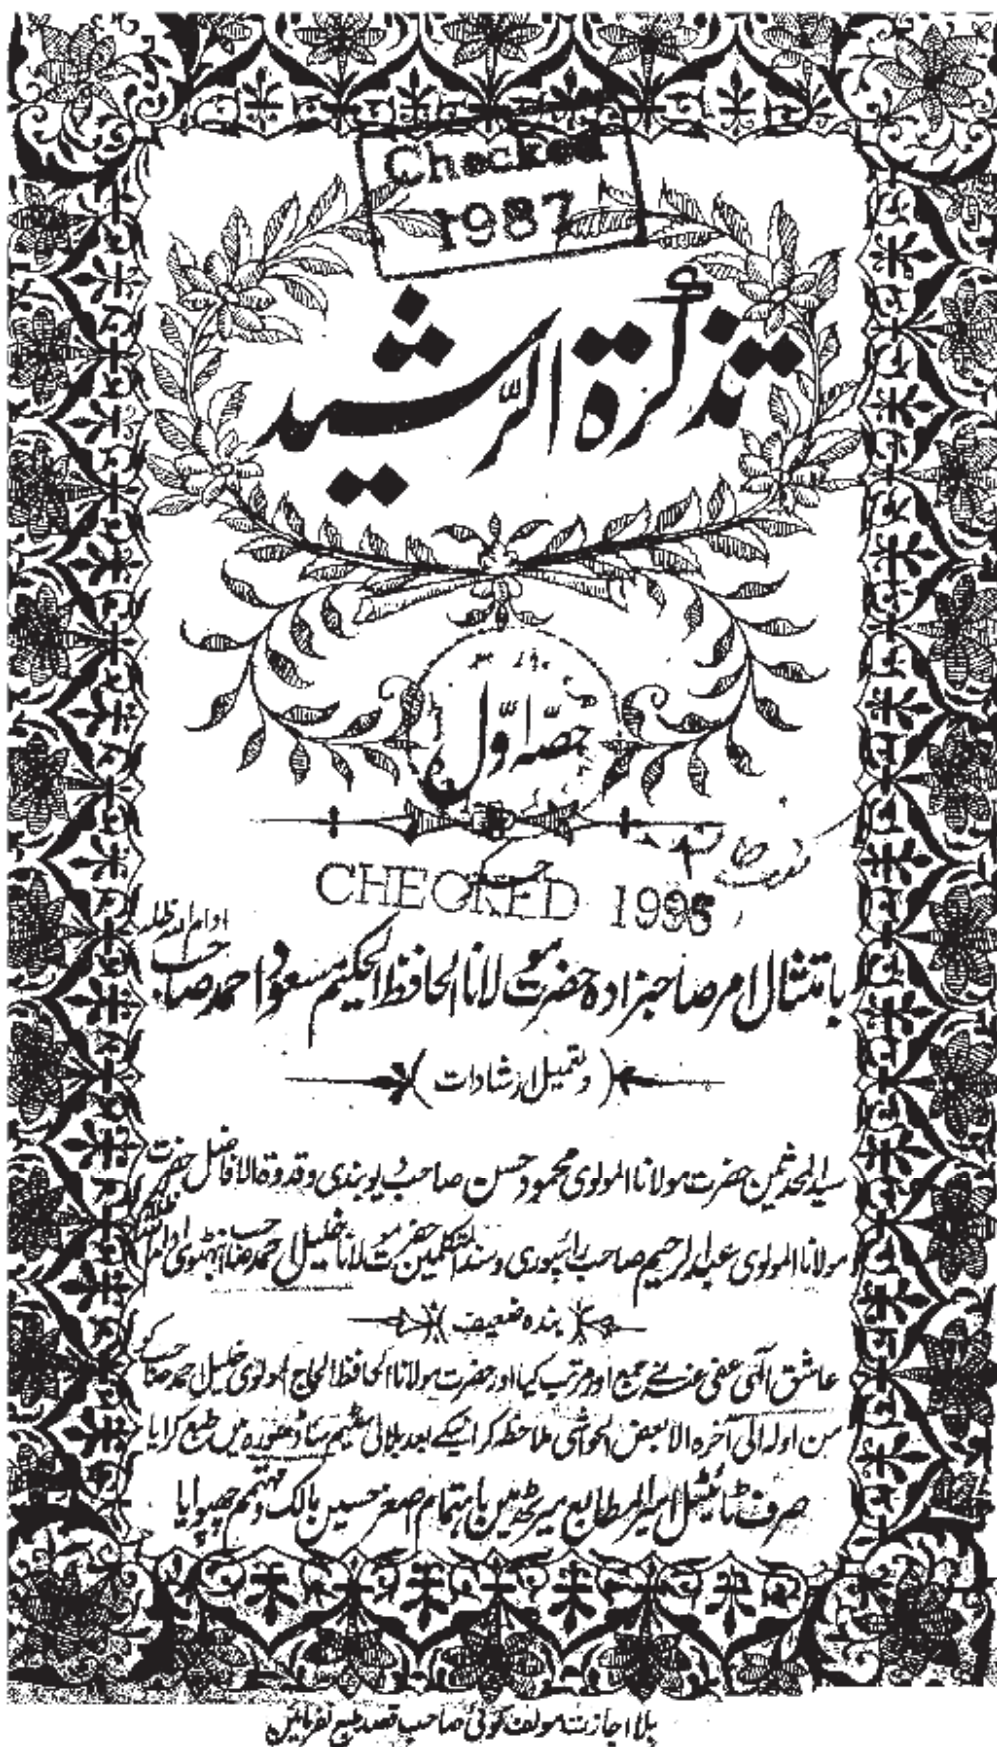 Checked
1987
تذکرۃ الرّشید
حصّہ اوّل
CHECKED 1996
ادام اللہ ظلہ
بامتثال امر صاحبزادہ حضرت مولانا الحافظ الحکیم مسعود احمد صاحب
(وبتعمیل ارشادات)
سید المحدثین حضرت مولانا المولوی محمود حسن صاحب دیوبندی و قدوۃ الافاضل حضرت
مولانا المولوی عبدالرحیم صاحب رائپوری و سند المتکلمین حضرت مولانا خلیل احمد صاحب انبہٹوی ادام اللہ ظلہم
بندہ ضعیف
عاشق الٰہی عفی عنہ نے جمع اور مرتب کیا اور حضرت مولانا الحافظ الحاج المولوی خلیل احمد صاحب کو
من اولہ الی آخرہ الا بعض الحواشی ملاحظہ کرا لینے کے بعد بلالی اسٹیم ساڈھورہ میں طبع کرایا
صرف ٹائیٹل اسیر المطابع میرٹھ میں باہتمام اصغر حسین مالک و مہتمم چھپوایا
بلا اجازت مولف کوئی صاحب قصد طبع نفرمائیں